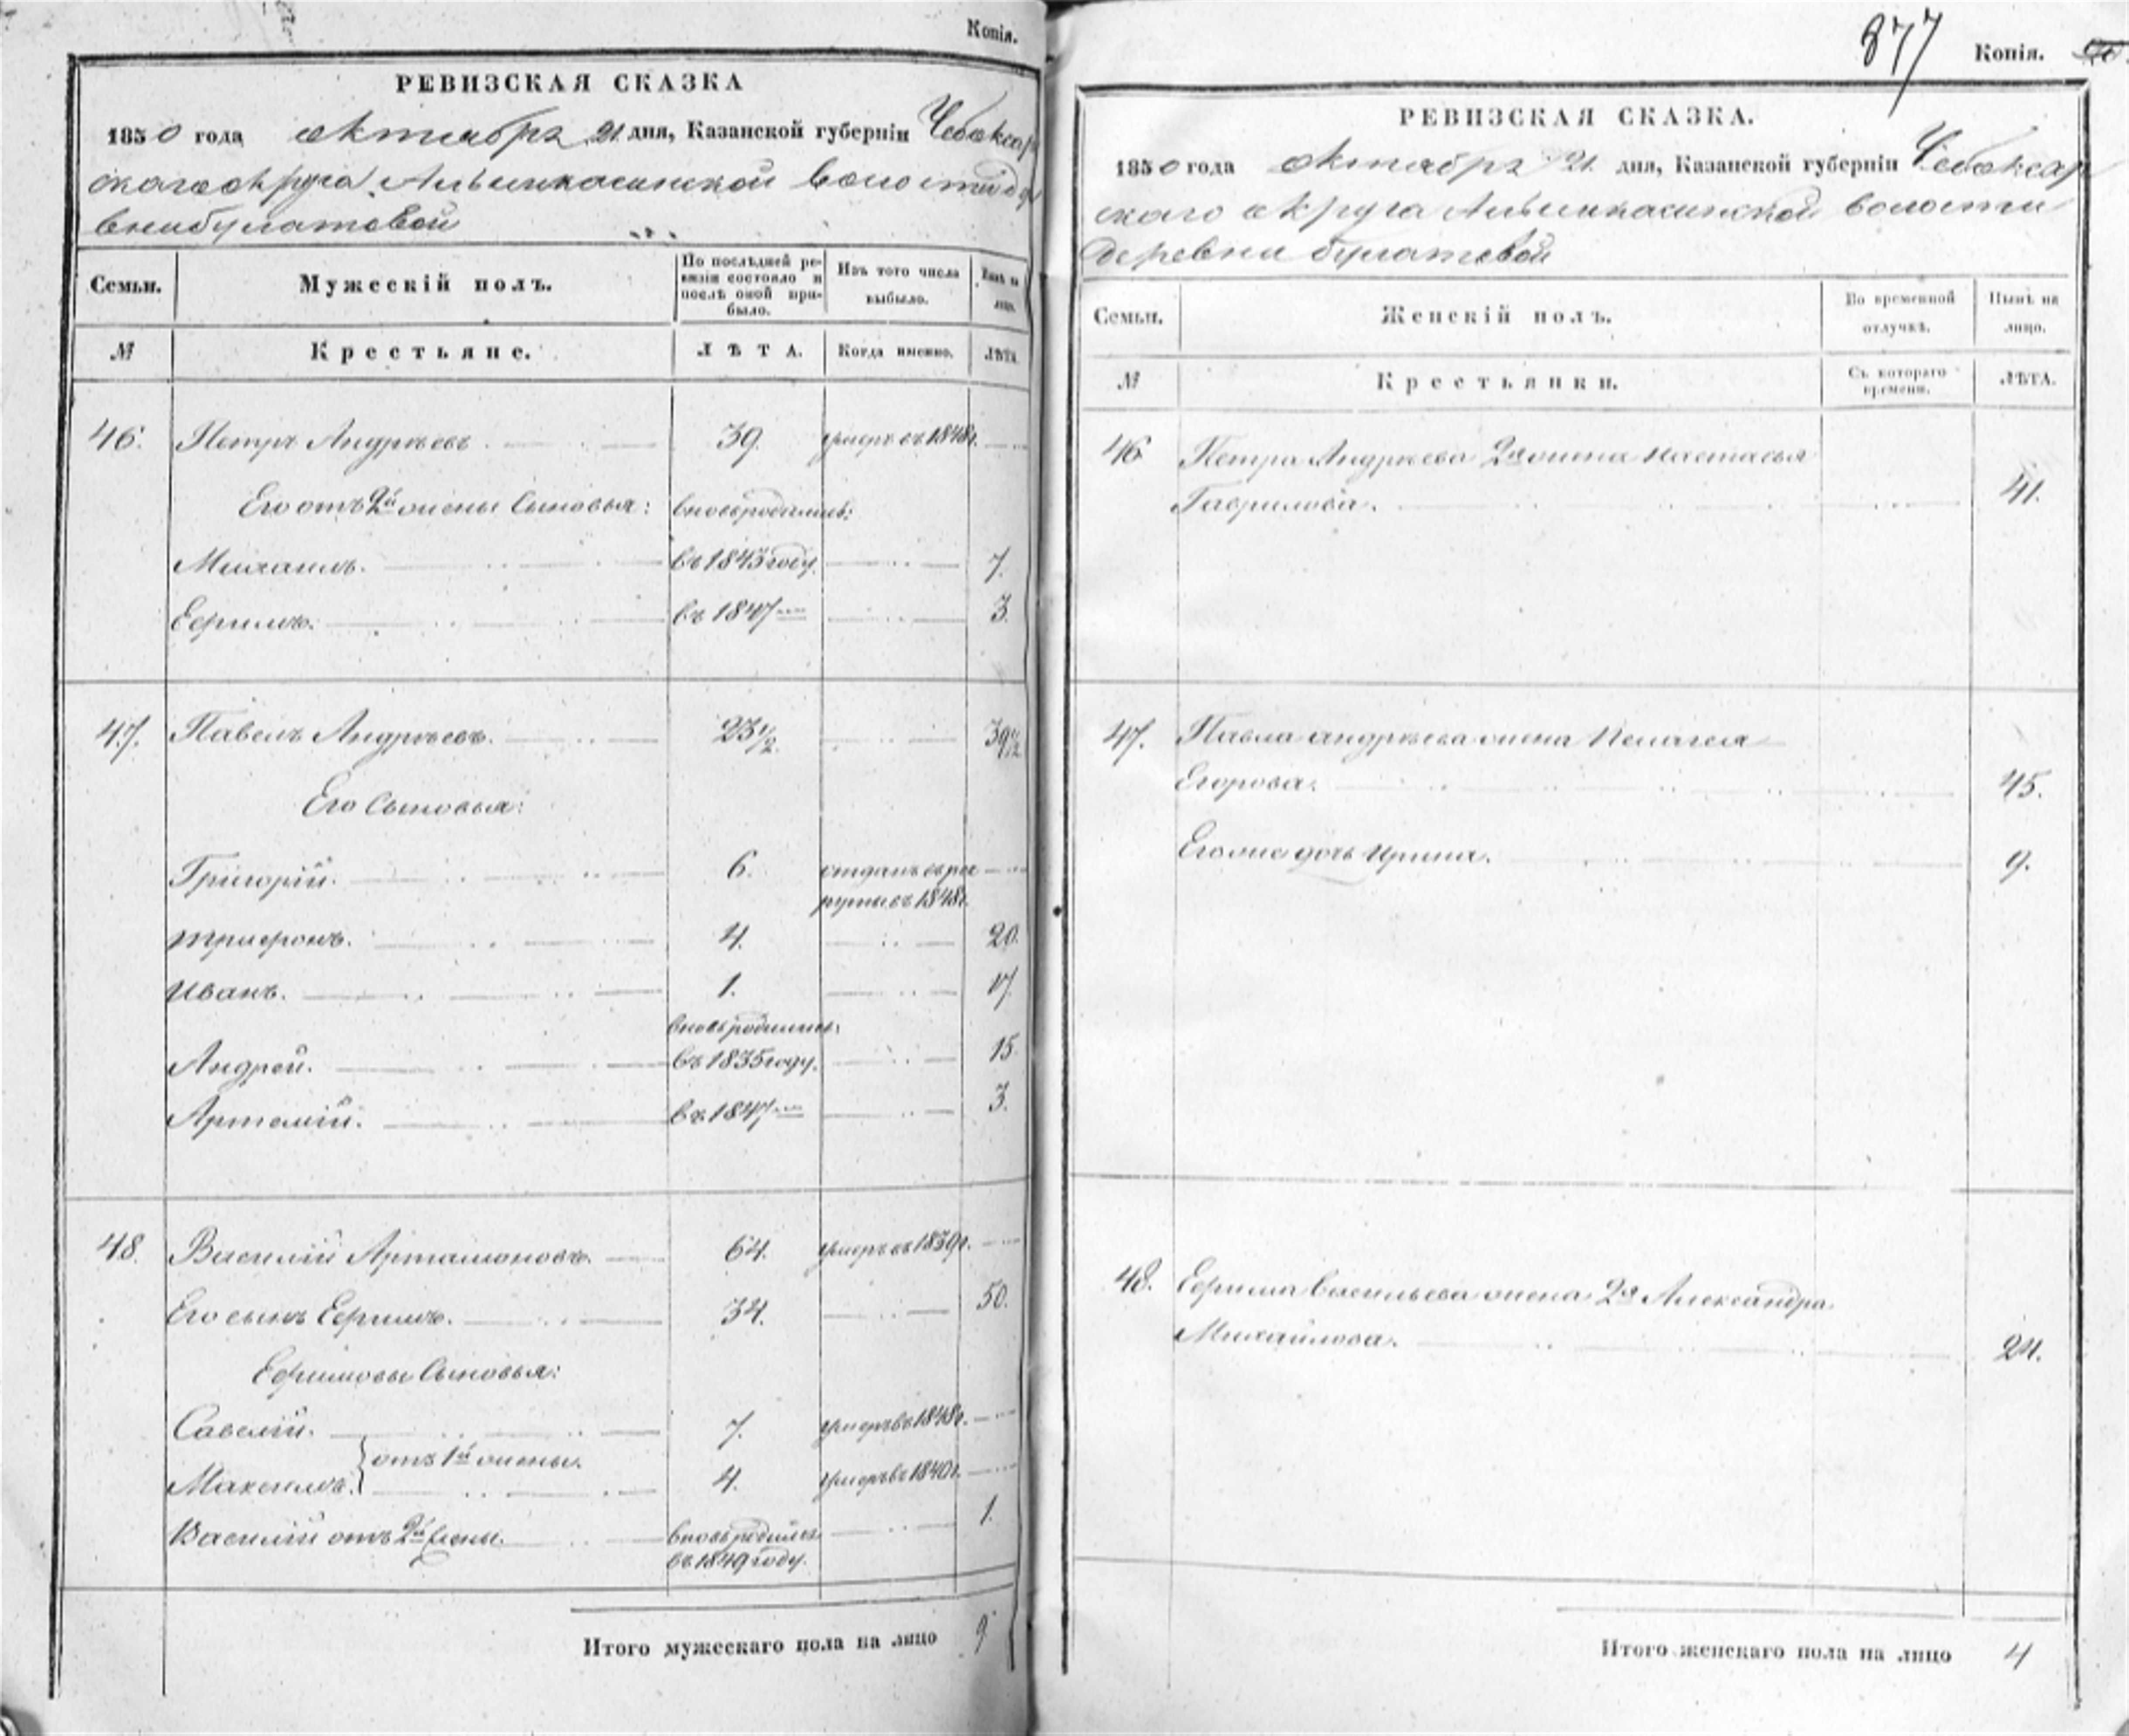 Копія.
РЕВИЗСКАЯ СКАЗКА
1850 года октября 21 дня, Казанской губерніи Чебоксар
скаго округа Алымкасинской волости де
вни булатовой
Семьи. Мужескій полъ. По послѣдней ре- Изъ того числа Нынѣ на
визіи состояло и выбыло. лицо.
послѣ оной при-
было.
№ Крестьяне. ЛѢТА. Когда именно. ЛѢТА.
46. Петръ Андреевъ. 39. умеръ въ 1848г.
Его отъ 2й жены сыновья: вновь родились:
Михаилъ. въ 1843 году. 7.
Ефримъ. въ 1847 3.
47. Павелъ Андреевъ. 23 1/2. 39 1/2
Его сыновья:
Григорій. 6. отданъ въ рек
руты въ 1848г.
Трифонъ. 4. 20.
Иванъ. 1. 17.
вновь родились:
Андрей. въ 1835 году. 15
Артемій. въ 1847 3.
48. Василій Артамоновъ. 64. умеръ въ 1839г.
Его сынъ Ефримъ. 34. 50.
Ефримовы сыновья:
Савелій. 7. умеръ въ 1848г.
отъ 1й жены.
Максимъ. 4. умеръ въ 1840г.
Василій отъ 2й жены. вновь родился 1.
въ 1849 году.
Итого мужескаго пола на лицо 9
877 Копія.
РЕВИЗСКАЯ СКАЗКА.
1850 года октября 21 дня, Казанской губерніи Чебоксар
скаго округа Алымкасинской волости
деревни булатовой
Семьи. Женскій полъ. Во временной Нынѣ на
отлучкѣ. лицо.
№ Крестьянки. Съ котораго ЛѢТА.
времени.
46 Петра Андреева 2я жена Настасья
Гаврилова. 41.
47. Павла андреева жена Пелагея
Егорова. 45.
Его же дочь Ирина. 9.
48. Ефрима Васильева жена 2я Александра
Михайлова. 24.
Итого женскаго пола на лицо 4